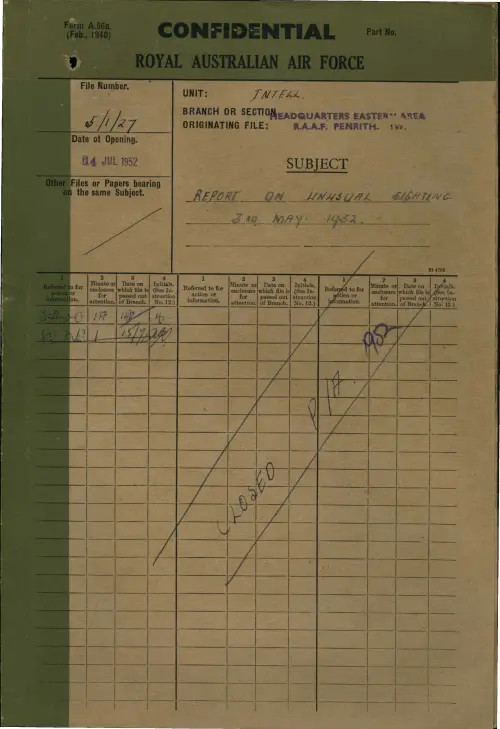 Form A.56a.
(Feb., 1940)
CONFIDENTIAL
Part No.
ROYAL AUSTRALIAN AIR FORCE
File Number.
5/1/27
Date of Opening.
14 JUL 1952
Other Files or Papers bearing
on the same Subject.
UNIT: INTELL.
BRANCH OR SECTION
ORIGINATING FILE:
HEADQUARTERS EASTERN AREA
R.A.A.F. PENRITH.
SUBJECT
REPORT ON UNUSUAL SIGHTING
3RD MAY 1952.
1 2 3 4 1 2 3 4 1 2 3 4
Referred to for action or information.
Minute or enclosure for attention.
Date on which file is passed out of Branch.
Initials. (See Instruction No. 12.)
Referred to for action or information.
Minute or enclosure for attention.
Date on which file is passed out of Branch.
Initials. (See Instruction No. 12.)
Referred to for action or information.
Minute or enclosure for attention.
Date on which file is passed out of Branch.
Initials. (See Instruction No. 12.)
CLOSED P/A. 1952